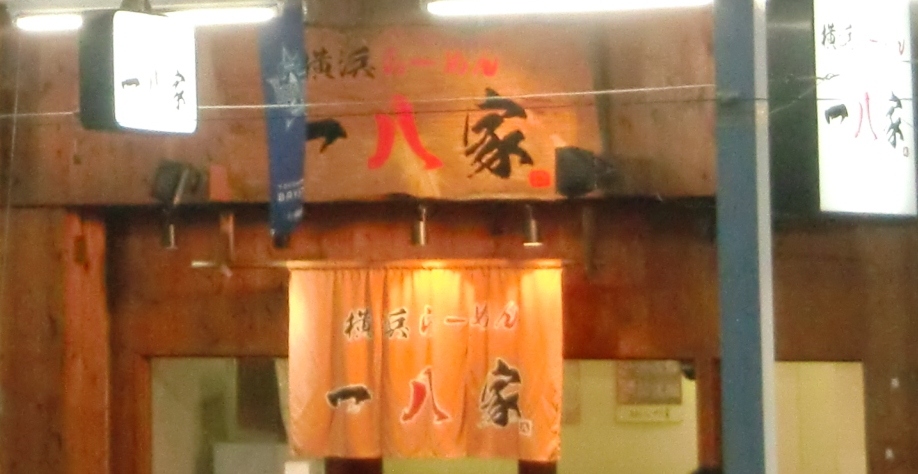 一八家
横浜らーめん
一八家
横浜らーめん
一八家
横浜らーめん
一八家